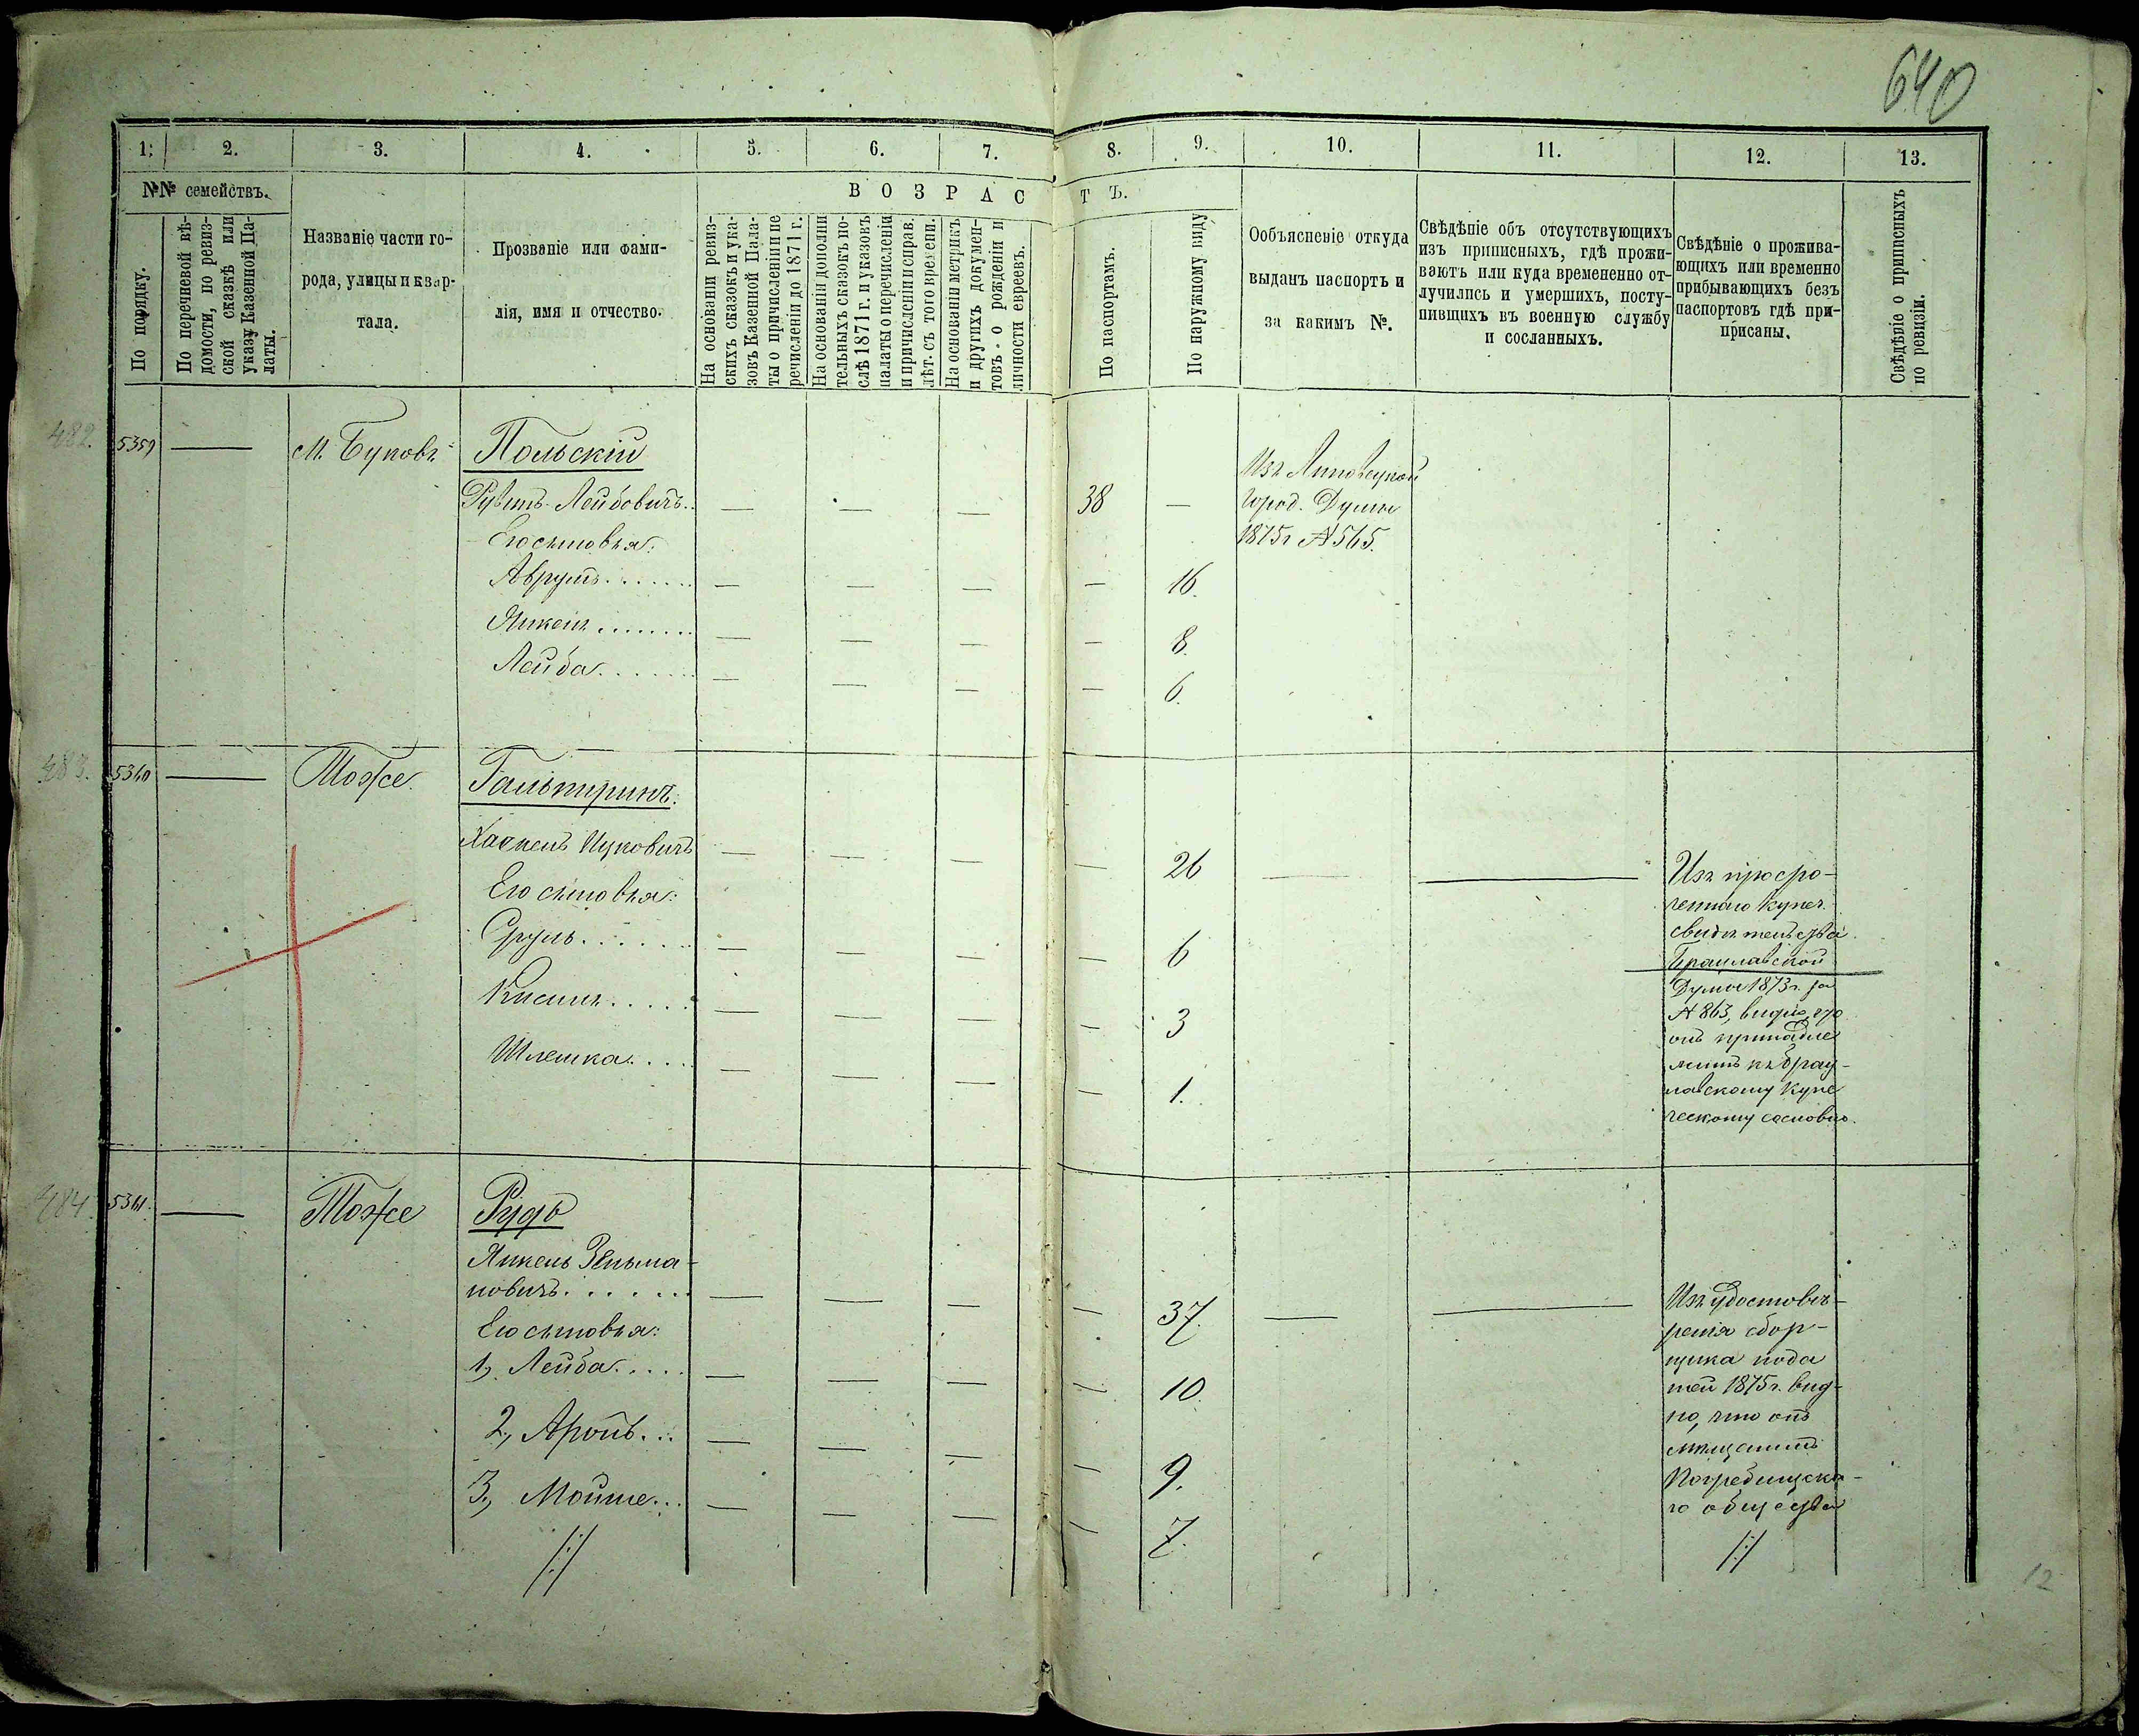 640
1.
2.
3.
4.
5.
6.
7.
8.
9.
10.
11.
12.
13.
№№ семействъ.
По порядку.
По перечневой вѣ-
домости, по ревиз-
ской сказкѣ или
указу Казенной Па-
латы.
Названіе части го-
рода, улицы и квар-
тала.
Прозваніе или фами-
лія, имя и отчество.
ВОЗРАСТЪ.
На основаніи ревиз-
скихъ сказокъ и ука-
зовъ Казенной Пала-
ты о причисленіи и пе
речисленіи до 1871 г.
На основаніи дополни
тельныхъ сказокъ по-
слѣ 1871 г. и указовъ
палаты о перечисленіи
и причисленіи и справ.
лѣт. съ того времени.
На основаніи метрикъ
и другихъ докумен-
товъ о рожденіи и
личности евреевъ.
По паспортамъ.
По наружному виду
Ообъясненіе откуда
выданъ паспортъ и
за какимъ №.
Свѣдѣніе объ отсутствующихъ
изъ приписныхъ, гдѣ прожи-
ваютъ или куда временено от-
лучились и умершихъ, посту-
пившихъ въ военную службу
и сосланныхъ.
Свѣдѣніе о прожива-
ющихъ или временно
прибывающихъ безъ
паспортовъ гдѣ при-
писаны.
Свѣдѣніе о приписныхъ
по ревизіи.
482.
5359
М. Буковъ
Польскій
Рувинъ Лейбовичъ..
38
Изъ Липовецкой
Город. Думы
1875 г № 565.
Его сыновья:
Аврумъ.......
16.
Янкель.......
8.
Лейба.......
6.
483.
5360
Тоже.
Гальпиринъ:
Хаскель Ицковичъ
26
Изъ просро-
ченнаго купеч.
свидѣтельства
Брацлавской
Думы 1873 г. за
№ 863, видно, что
онъ принадле
житъ къ брац-
лавскому купе
ческому сословію.
Его сыновья:
Сруль.......
6
3
Шлемка....
1.
484.
5361.
Тоже
Рудь
Янкель Зельма-
новичъ.......
37.
Изъ удостовѣ-
ренія сбор-
щика пода
тей 1875 г. вид-
но, что онъ
мѣщанинъ
Погребищска-
го общества
Его сыновья:
1, Лейба.....
10.
2, Аронъ...
9.
3, Мойше...
7.
12